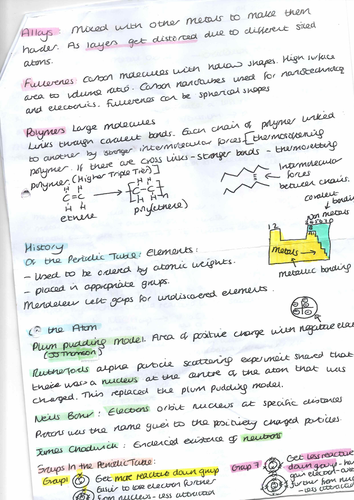 Alloys Mixed with other metals to make them
harder. As layers get distorted due to different sized
atoms.
Fullerenes Carbon molecules with hollow shapes. High surface
area to volume ratio. Carbon nanotubes used for nanotechnology
and electronics. Fullerenes can be spherical shapes
Polymers Large molecules
Links through covalent bonds. Each chain of polymer linked
to another by stronger intermolecular forces [thermosoftening
polymer. If there are cross links - stronger bonds - thermosetting
polymer. (Higher Triple Tier)]
H H
C=C
H H
ethene
H H
C-C
H H
n
poly(ethene)
intermolecular
forces
between chains.
covalent bonding
Non metals
1 2
metals
metallic bonding
History
Of the Periodic Table: Elements:
- Used to be ordered by atomic weights.
- placed in appropriate groups.
Mendeleev left gaps for undiscovered elements.
the Atom
Plum pudding Model. Area of positive charge with negative
(JJ Thomson)
Rutherfords alpha particle scattering experiment showed that
there was a nucleus at the centre of the atom that was
charged. This replaced the plum pudding model.
Neils Bohr: Electrons orbit nucleus at specific distances
Protons was the name given to the positively charged particles
James Chadwick: Evidenced existence of neutrons
Groups In the Periodic Table:
Group 1
Get more reactive down group
Easier to lose electron further
from nucleus - less attraction
Group 7
Get less reactive
down group -
gain electron
further from
nucleus - less